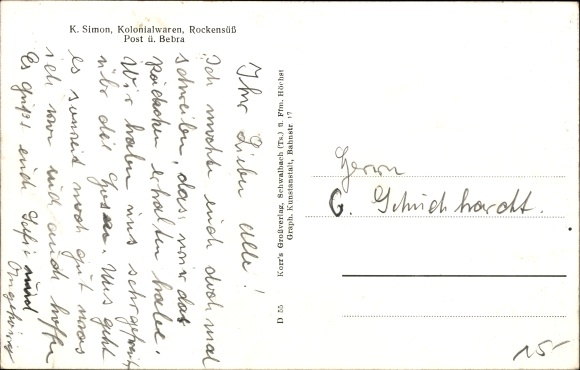 K. Simon, Kolonialwaren, Rockensüß
Post ü. Bebra
Ihr Lieben alle!
Ich möchte euch doch mal
schreiben, das wir das
Päckchen erhalten habe.
Wir haben uns sehr gefreut
über die Uns geht
es soweit noch gut was
ich von euch auch hoffe
Es grüßt euch und
D 55 Korr's Großverlag, Schwalbach (Ts.) ü. Ffm. Höchst
Graph. Kunstanstalt, Bahnstr 17
Herrn
G. Schuchhardt.
15-